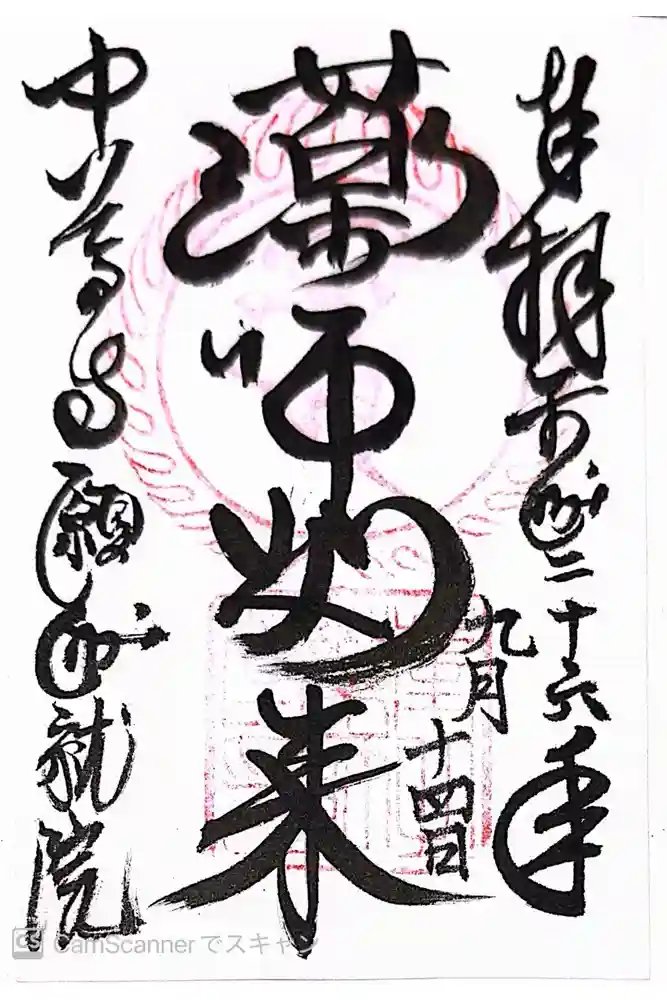 奉拝 平成二十六年
九月十四日
薬師如来
中尊寺 願成就院
CamScannerでスキャン